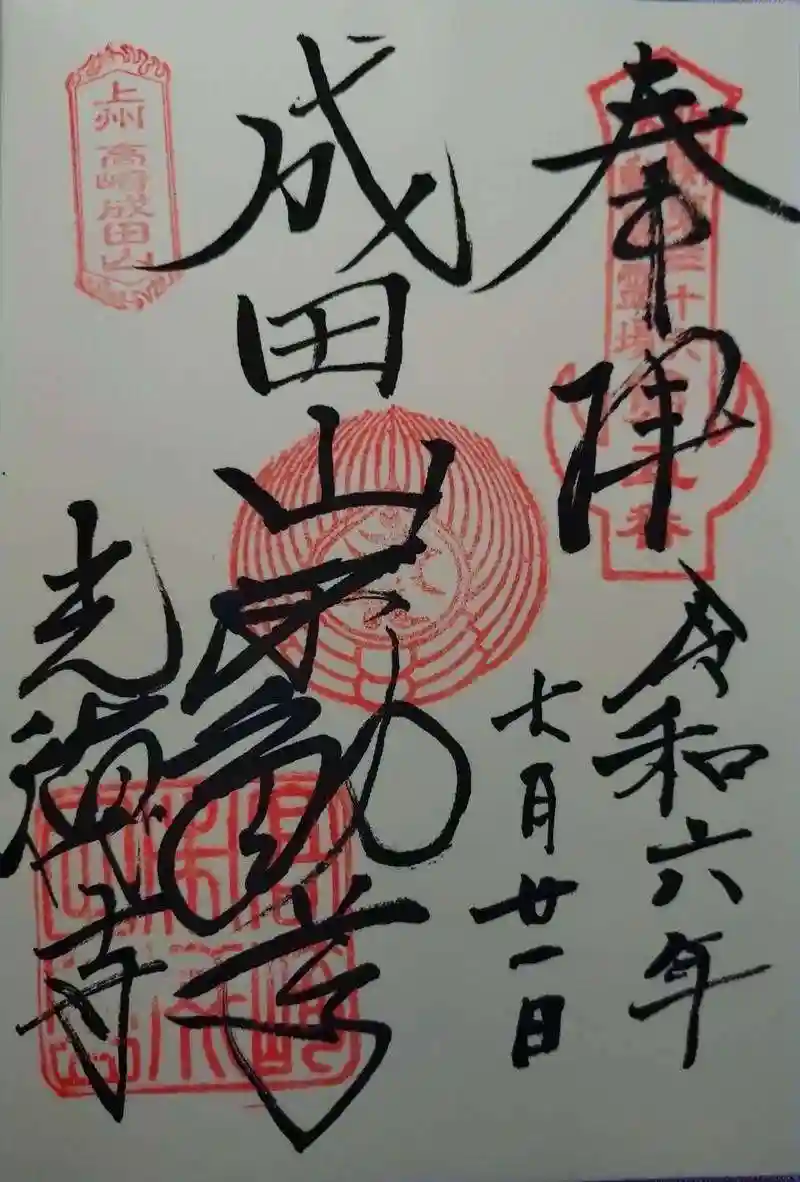 奉拝
令和六年
七月廿一日
成田山不動尊
光徳寺
上州 高崎成田山
三十六
霊場
五番